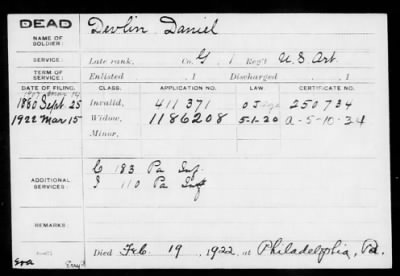 DEAD
NAME OF SOLDIER:
Devlin, Daniel
SERVICE:
Late rank, Co. G, 1 Reg't U.S. Art.
TERM OF SERVICE:
Enlisted , 1 Discharged , 1
DATE OF FILING. CLASS. APPLICATION NO. LAW. CERTIFICATE NO.
1880 Sept. 25 Invalid, 411 371 250734
1922 Mar 15 Widow, 1186208 5-1-20 a-5-10-34
Minor,
ADDITIONAL SERVICES:
C 183 Pa Inf.
I 110 Pa Inft
REMARKS:
Died Feb 19, 1922, at Philadelphia, Pa.